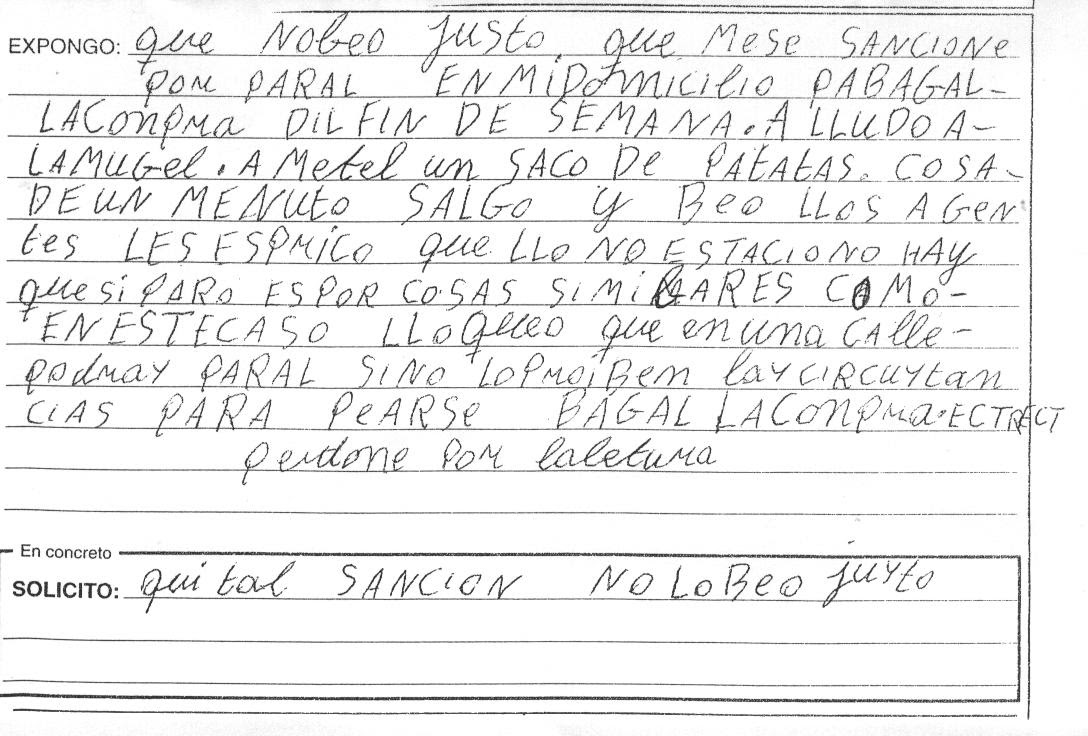 EXPONGO: que NOBEO JUSTO. que MESE SANCIONe
POR PARAL EN MIDOMICILIO PABAGAL-
LACONPRA DILFIN DE SEMANA. A LLUDO A-
LAMUGEL. A METEL un SACO DE PATATAS. COSA-
DEUN MENUTO SALGO Y BEO LLOS AGEN
tes LES ESPRICO que LLO NO ESTACIONO HAY
que si PARO ES POR COSAS SIMILARES COMO-
EN ESTECASO LLO QUEO que en una CALLe-
podray PARAL SINO LOPROiBen laY CIRCUYtan
CIAS PARA PeARSe BAGAL LACONPRA. ECTRECT
perdone POR laletura
En concreto
SOLICITO: quital SANCION NO LO BEO juYto